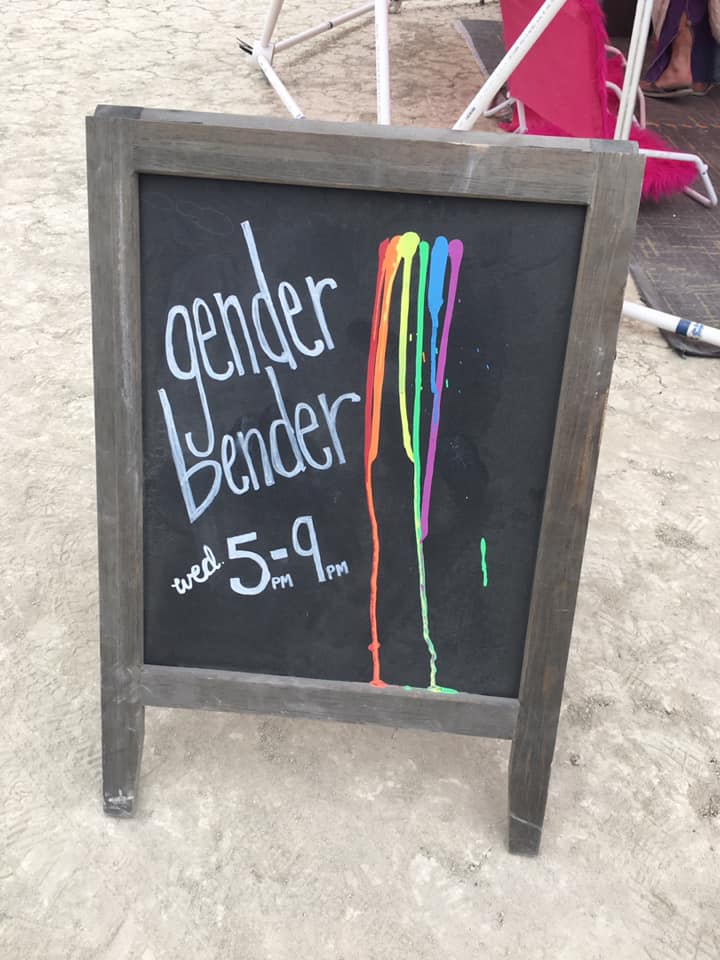 gender
bender
wed. 5PM-9PM